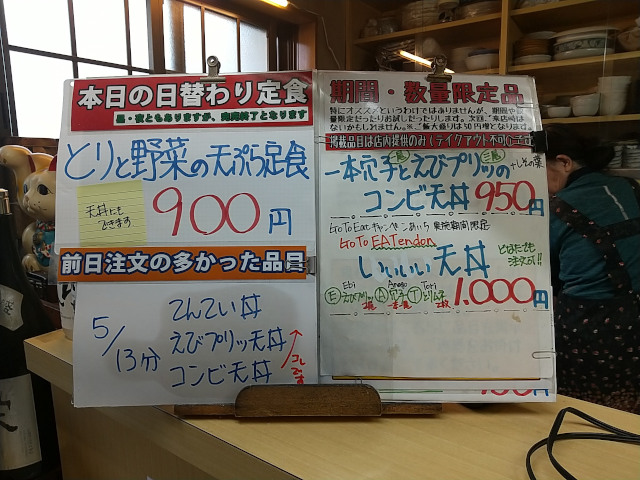 本日の日替わり定食
昼・夜ともありますが、売切終了となります
とりと野菜の天ぷら定食
天丼にも
できます
900円
前日注文の多かった品目
5/13分
てんてい丼
えびプリッ天丼
コンビ天丼
コレです
期間・数量限定品
特にオススメというわけではありませんが、期間や
量限定だったりお試しだったりします。次回、ご来店時は
ないかもしれません。※ご飯大盛りは50円増となります。
掲載品目は店内提供のみ(テイクアウト不可)
一本穴子とえびプリッの
二尾
+しその葉
コンビ天丼 950円
Go To Eat キャンペーンあいち 実施期間限定
Go To EATendon
いいいい天丼
どなたでも
注文可!!
Ebi Anago Tori
Eえびプリッ A穴子 Tとりムネ
1.000円